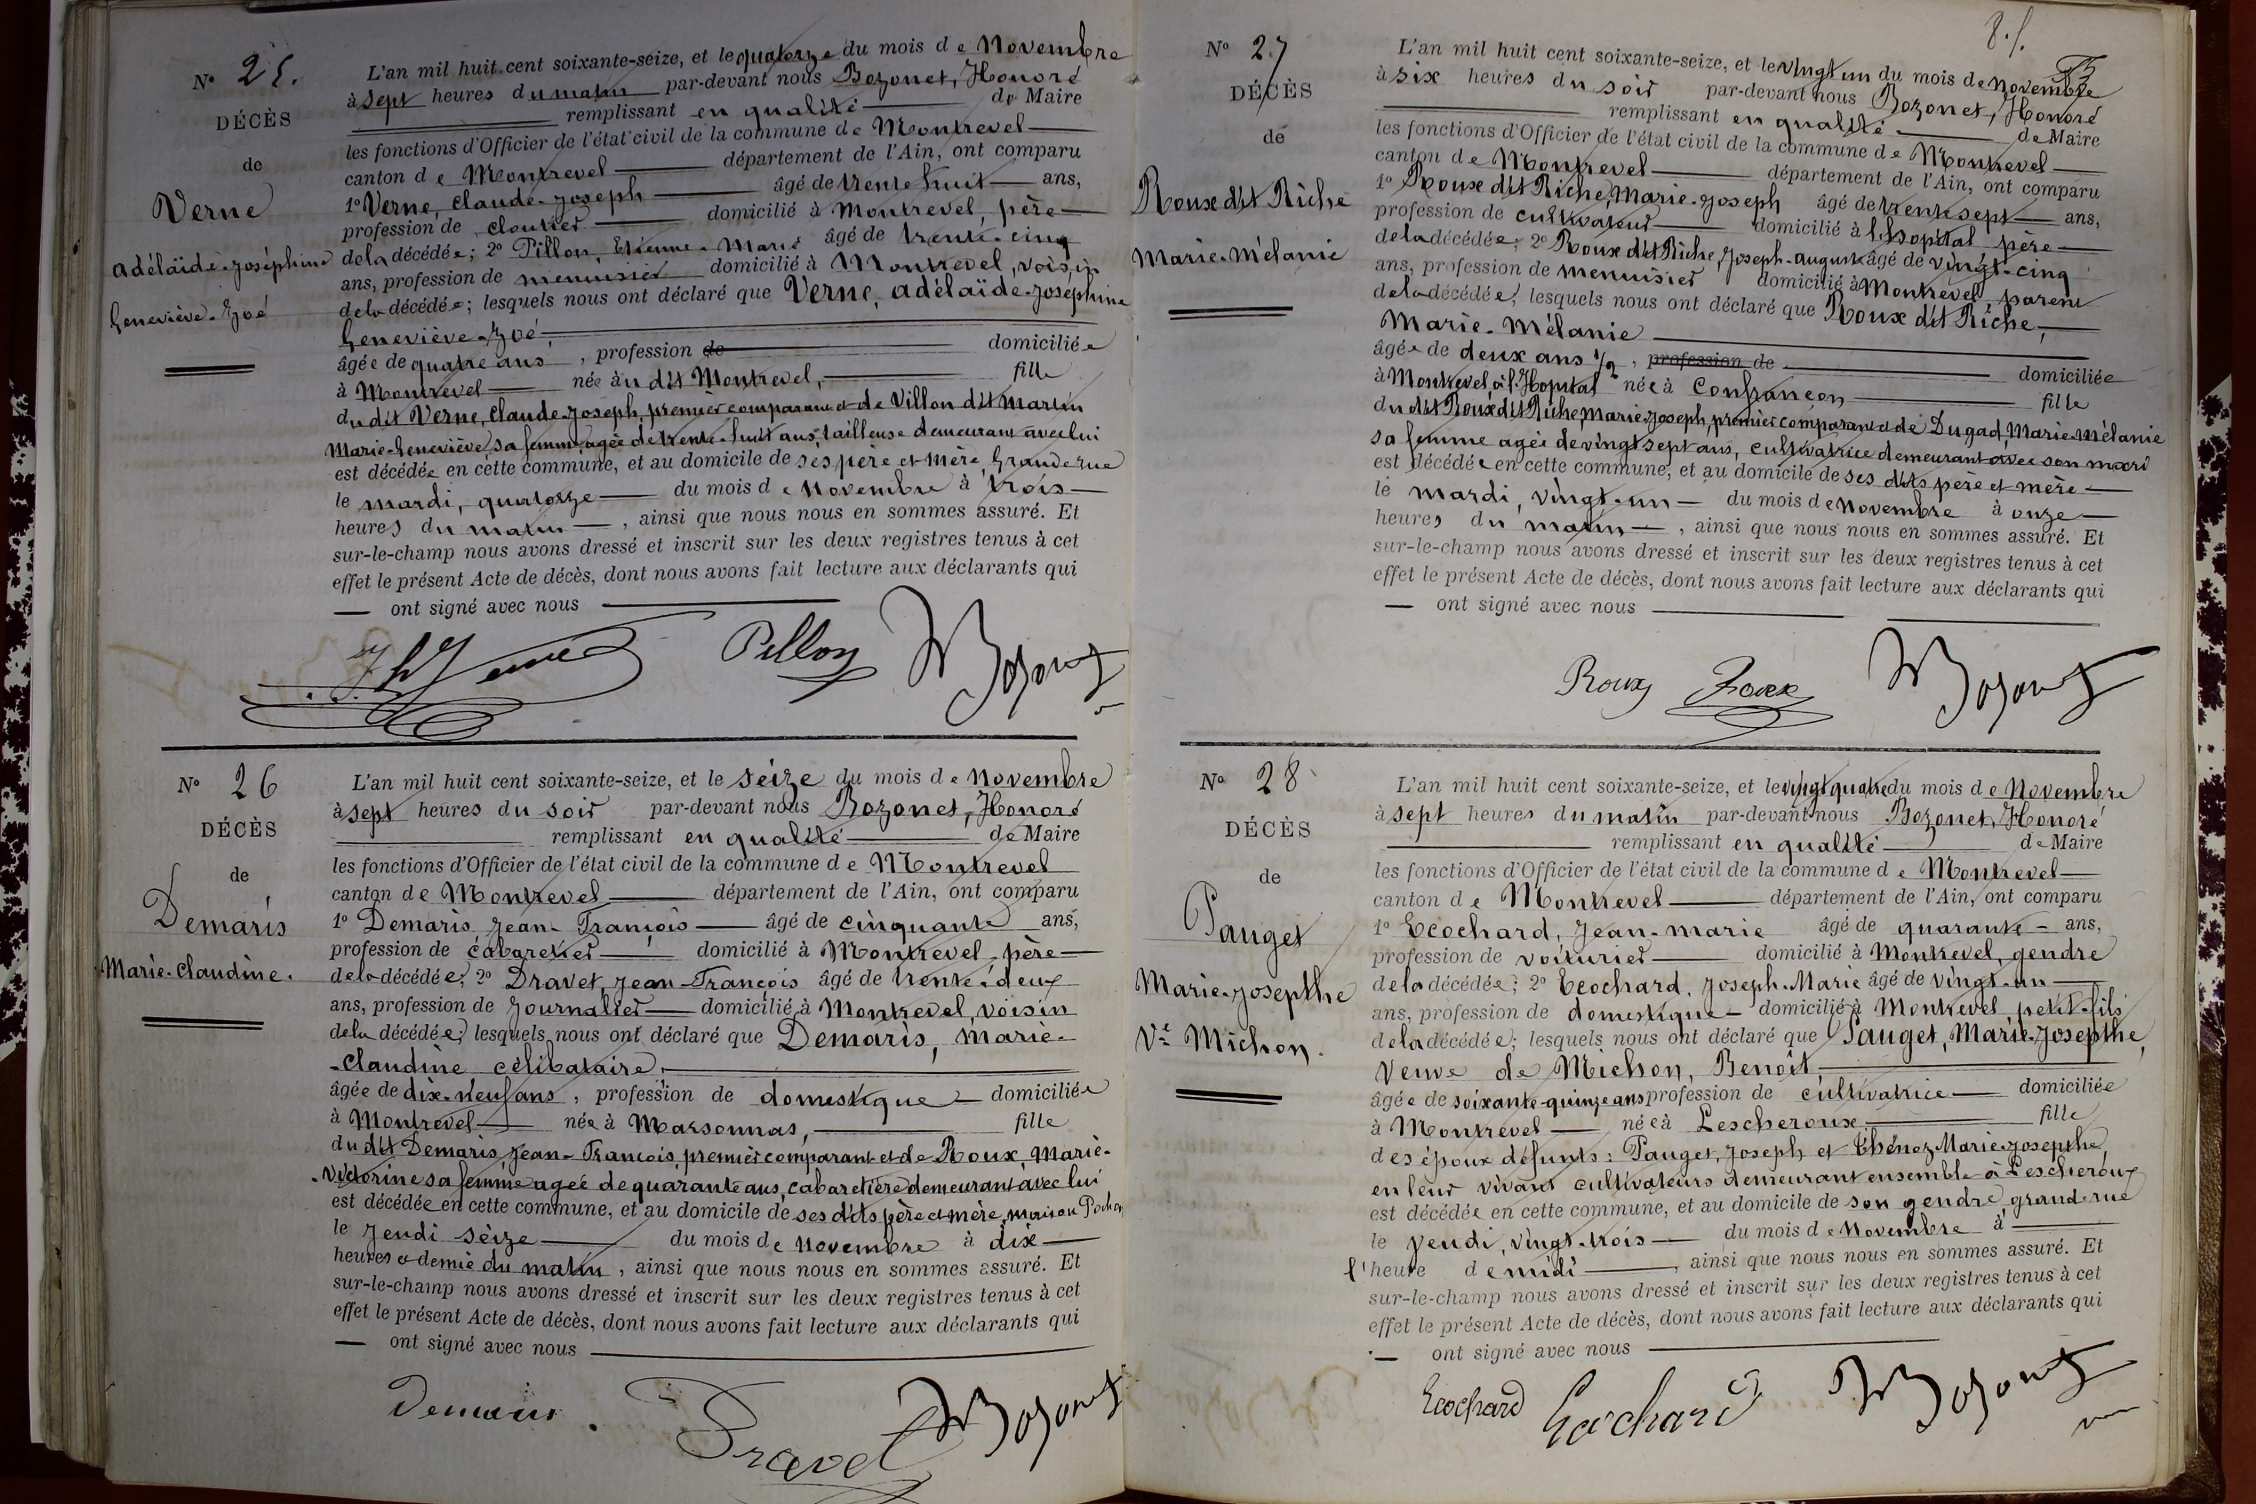 Nº 25.
DÉCÈS
de
Verne
adélaïde-joséphine
Geneviève-Zoé
L'an mil huit cent soixante-seize, et le quatorze du mois de Novembre
à sept heures du matin par-devant nous Bozonet, Honoré
remplissant en qualité de Maire
les fonctions d'Officier de l'état civil de la commune de Montrevel
canton de Montrevel département de l'Ain, ont comparu
1º Verne, Claude-Joseph âgé de trente huit ans,
profession de cloutier domicilié à Montrevel, père
de la décédée; 2º Pillon, Etienne-Marie âgé de trente-cinq
ans, profession de menuisier domicilié à Montrevel, voisin
de la décédée; lesquels nous ont déclaré que Verne, adélaïde-joséphine
Geneviève-Zoé,
âgée de quatre ans, profession de domiciliée
à Montrevel née à u dit Montrevel, fille
du dit Verne, Claude-Joseph, premier comparant et de Villon dit Martin
Marie-Geneviève, sa femme, agée de trente-huit ans, tailleuse demeurant avec lui
est décédée en cette commune, et au domicile de ses père et mère, Grande rue
le mardi, quatorze du mois de Novembre à trois
heures du matin, ainsi que nous nous en sommes assuré. Et
sur-le-champ nous avons dressé et inscrit sur les deux registres tenus à cet
effet le présent Acte de décès, dont nous avons fait lecture aux déclarants qui
ont signé avec nous
Verne Pillon Bozonet
Nº 26
DÉCÈS
de
Demaris
Marie-Claudine.
L'an mil huit cent soixante-seize, et le seize du mois de Novembre
à sept heures du soir par-devant nous Bozonet, Honoré
remplissant en qualité de Maire
les fonctions d'Officier de l'état civil de la commune de Montrevel
canton de Montrevel département de l'Ain, ont comparu
1º Demaris, Jean-François âgé de cinquante ans,
profession de cabaretier domicilié à Montrevel, père
de la décédée; 2º Dravet, Jean-François âgé de trente-deux
ans, profession de Journalier domicilié à Montrevel, voisin
de la décédée; lesquels nous ont déclaré que Demaris, Marie-
-Claudine célibataire,
âgée de dix-neuf ans, profession de domestique domiciliée
à Montrevel née à Marsonnas, fille
du dit Demaris, Jean-François, premier comparant et de Roux, Marie-
-Victorine sa femme agée de quarante ans, cabaretière demeurant avec lui
est décédée en cette commune, et au domicile de ses dits père et mère, maison Pochon
le Jeudi seize du mois de Novembre à dix
heures et demie du matin, ainsi que nous nous en sommes assuré. Et
sur-le-champ nous avons dressé et inscrit sur les deux registres tenus à cet
effet le présent Acte de décès, dont nous avons fait lecture aux déclarants qui
ont signé avec nous
Demaris Dravet Bozonet
Nº 27
DÉCÈS
de
Roux dit Riche
Marie-Mélanie
L'an mil huit cent soixante-seize, et le vingt un du mois de Novembre
à six heures du soir par-devant nous Bozonet, Honoré
remplissant en qualité de Maire
les fonctions d'Officier de l'état civil de la commune de Montrevel
canton de Montrevel département de l'Ain, ont comparu
1º Roux dit Riche, Marie-Joseph âgé de trente sept ans,
profession de cultivateur domicilié à l'hopital père
de la décédée; 2º Roux dit Riche, Joseph-auguste âgé de vingt-cinq
ans, profession de menuisier domicilié à Montrevel, parent
de la décédée; lesquels nous ont déclaré que Roux dit Riche,
Marie-Mélanie
âgée de deux ans 1/2, profession de domiciliée
à Montrevel à l'Hopital née à Confrançon fille
du dit Roux dit Riche, Marie-Joseph, premier comparant et de Dugad, Marie-Mélanie
sa femme agée de vingt sept ans, cultivatrice demeurant avec son mari
est décédée en cette commune, et au domicile de ses dits père et mère
le mardi, vingt-un du mois de Novembre à onze
heures du matin, ainsi que nous nous en sommes assuré. Et
sur-le-champ nous avons dressé et inscrit sur les deux registres tenus à cet
effet le présent Acte de décès, dont nous avons fait lecture aux déclarants qui
ont signé avec nous
Roux Roux Bozonet
Nº 28
DÉCÈS
de
Pauget
Marie-Josepthe
Vᵉ Michon.
L'an mil huit cent soixante-seize, et le vingt quatre du mois de Novembre
à sept heures du matin par-devant nous Bozonet, Honoré
remplissant en qualité de Maire
les fonctions d'Officier de l'état civil de la commune de Montrevel
canton de Montrevel département de l'Ain, ont comparu
1º Ecochard, Jean-marie âgé de quarante ans,
profession de voiturier domicilié à Montrevel, gendre
de la décédée; 2º Ecochard, Joseph-Marie âgé de vingt-un
ans, profession de domestique domicilié à Montrevel, petit-fils
de la décédée; lesquels nous ont déclaré que Pauget, Marie-Josepthe,
Veuve de Michon, Benoît
âgée de soixante-quinze ans profession de cultivatrice domiciliée
à Montrevel née à Lescheroux fille
des époux défunts: Pauget, Joseph et Thénoz Marie-Josepthe
en leur vivant cultivateurs demeurant ensemble à Lescheroux
est décédée en cette commune, et au domicile de son gendre, grande rue
le Jeudi, vingt-trois du mois de Novembre à
l'heure de midi, ainsi que nous nous en sommes assuré. Et
sur-le-champ nous avons dressé et inscrit sur les deux registres tenus à cet
effet le présent Acte de décès, dont nous avons fait lecture aux déclarants qui
ont signé avec nous
Ecochard Ecochard Bozonet